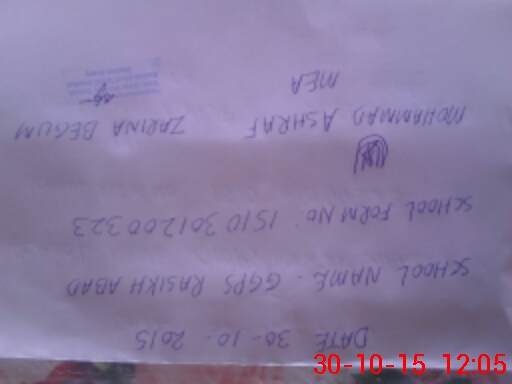 DATE 30-10-2015
SCHOOL NAME - GGPS RASIKH ABAD
SCHOOL FORM NO: 1510301200323
MOHAMMAD ASHRAF ZARINA BEGUM
MEA
30-10-15 12:05